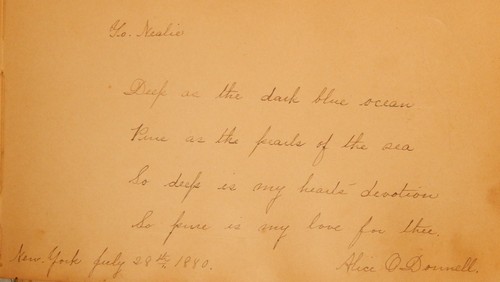 To. Nealie
Deep as the dark blue ocean
Pure as the pearls of the sea
So deep is my hearts devotion
So pure is my love for thee.
New. York July 28th 1880.
Alice O.Donnell.